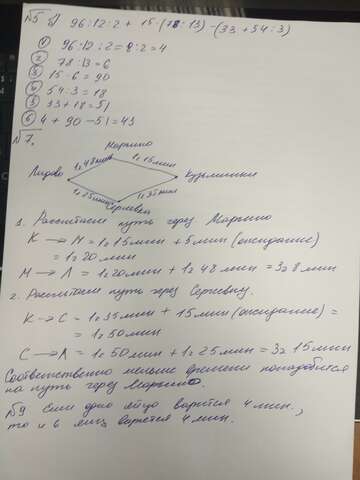 №5 б) 96:12:2 + 15·(78:13) -(33 +54:3)
① 96:12:2=8:2=4
② 78:13=6
③ 15·6=90
④ 54:3=18
⑤ 33+18=51
⑥ 4+90-51=43
№7.
Марьино
1ч48мин 1ч15мин
Лидово Кузьминки
1ч25мин 1ч35мин
Сергиевск
1. Рассчитаем путь через Марьино
К → М = 1ч 15мин + 5мин (ожидание)
= 1ч 20мин
М → Л = 1ч20мин + 1ч 48 мин = 3ч 8мин
2. Рассчитаем путь через Сергиевку.
К → С = 1ч35мин + 15мин (ожидание) =
= 1ч50мин
С → Л = 1ч 50мин + 1ч 25 мин = 3ч 15мин
Соответственно меньше времени понадобится
на путь через Марьино.
№9 Если одно яйцо варится 4 мин.,
то и 6 яиц варятся 4 мин.